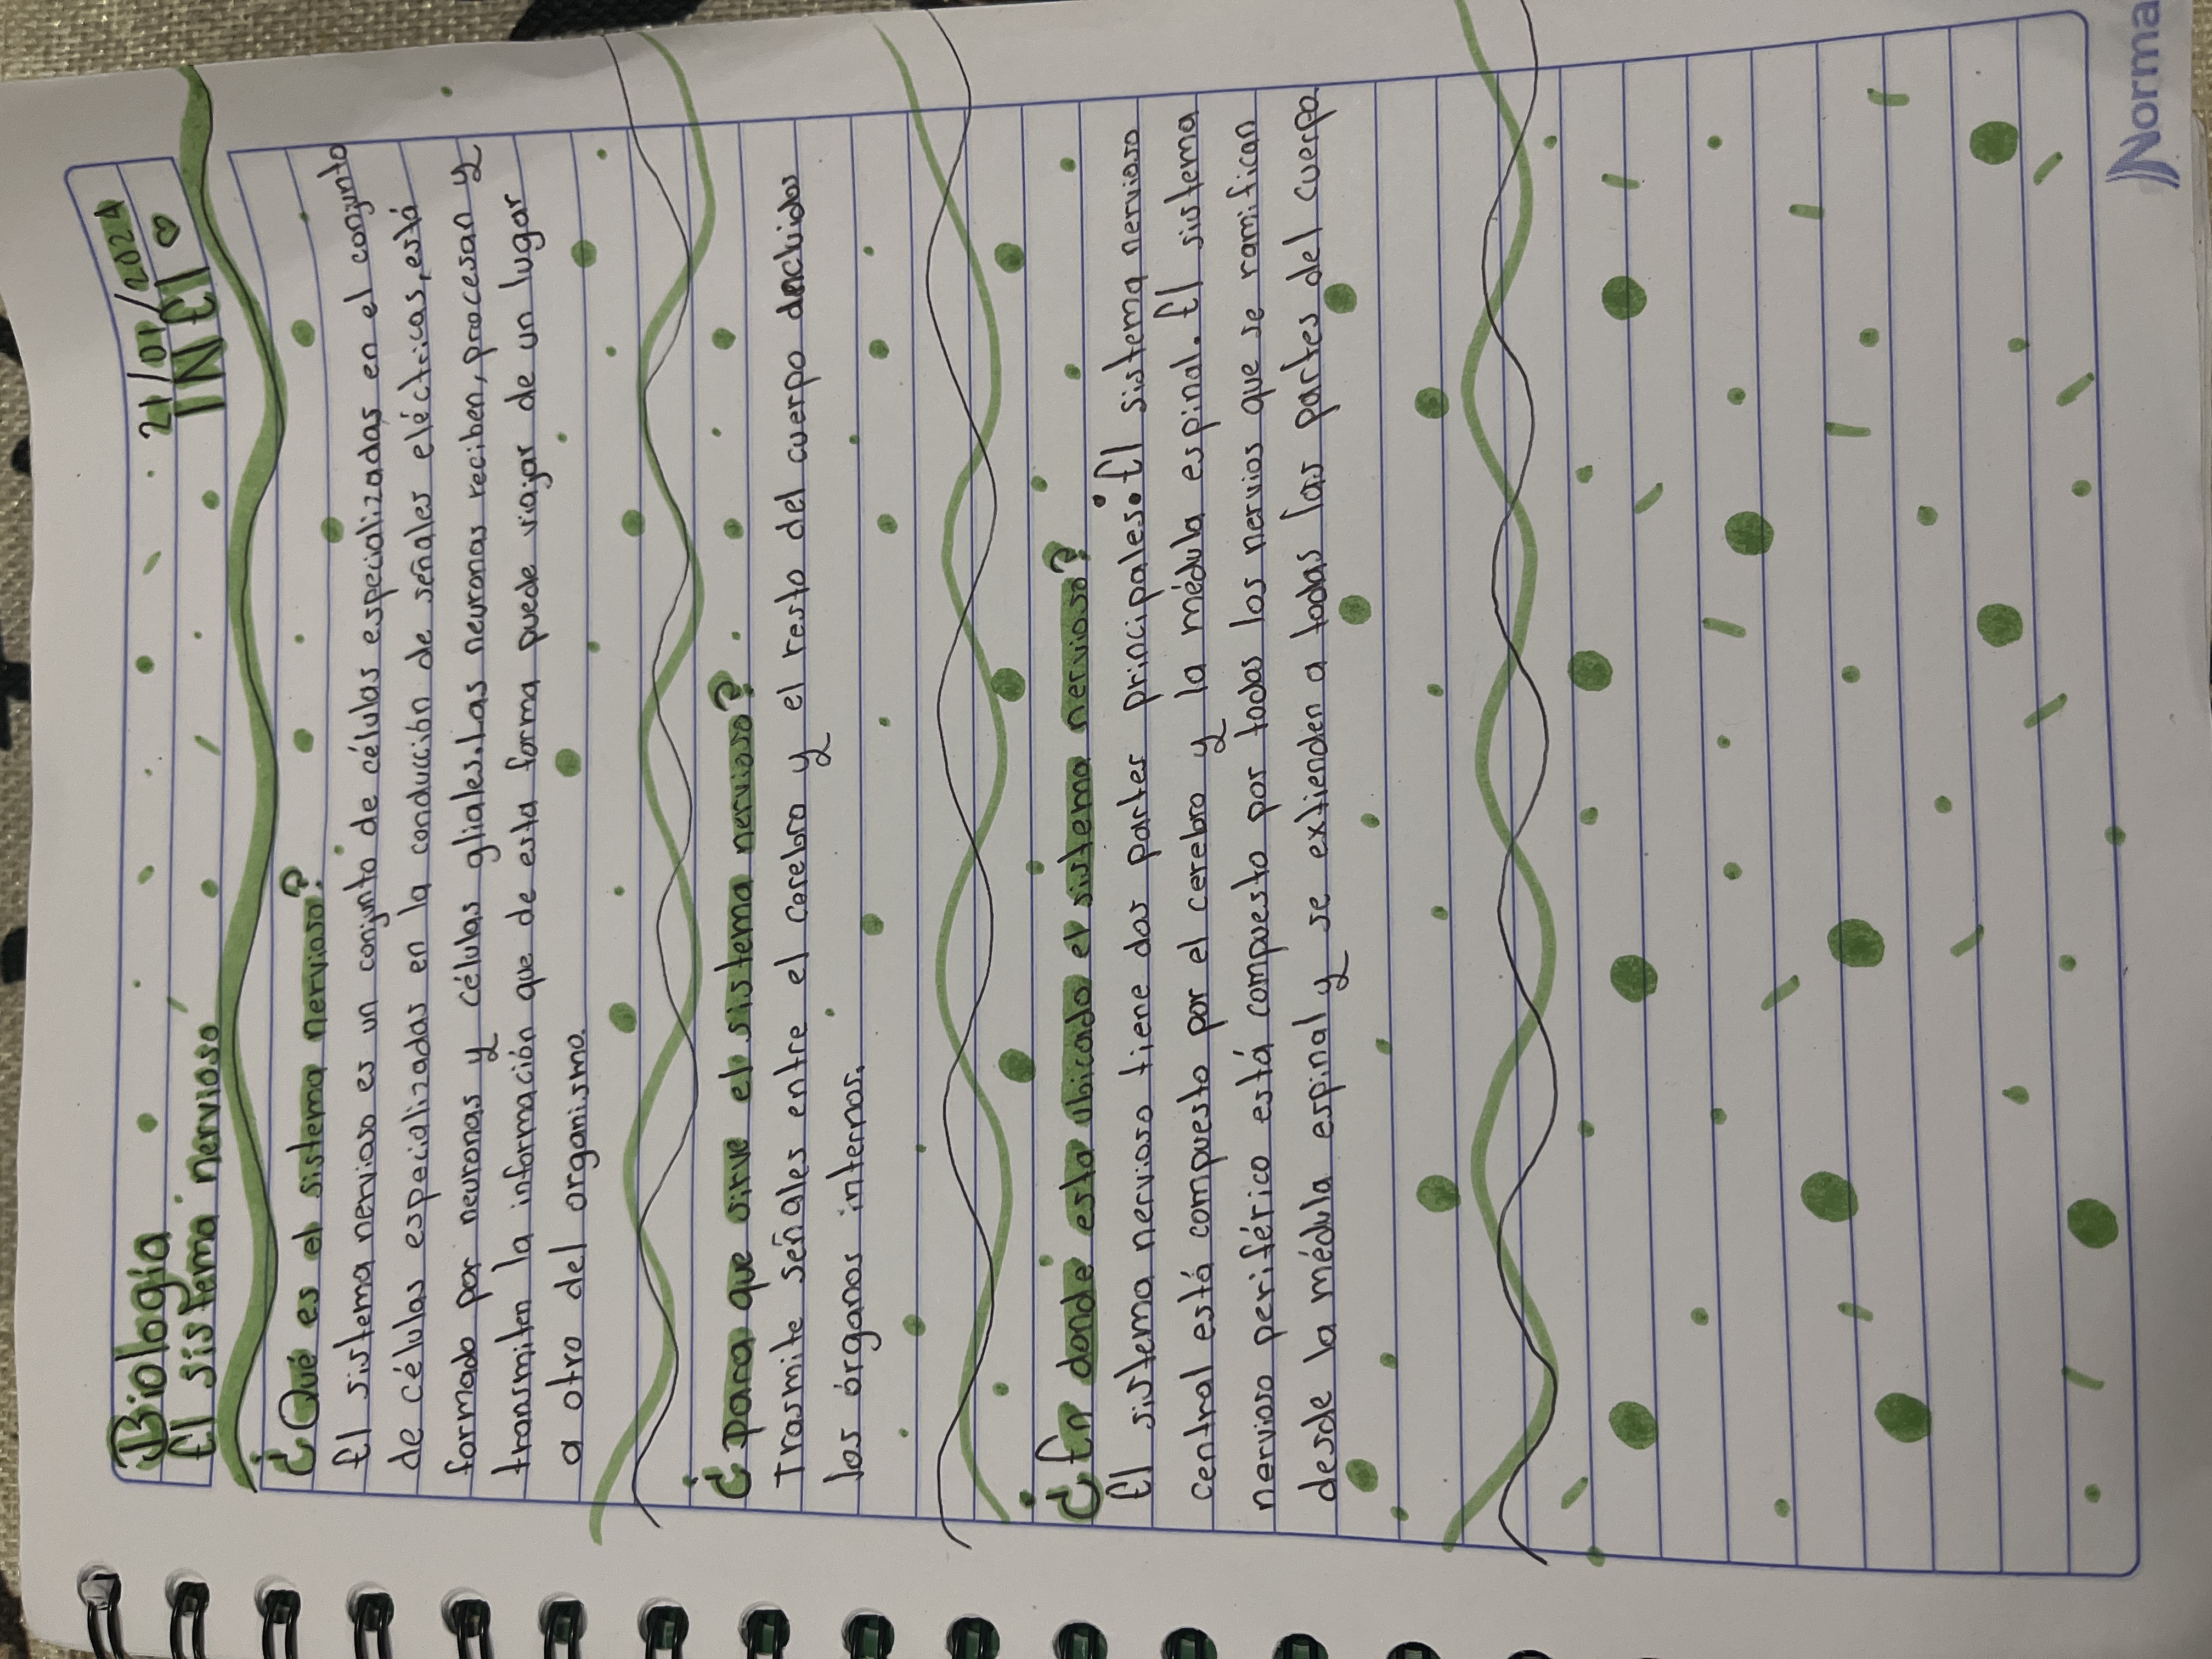 Biología 21/01/2024
El sistema nervioso INEI
¿Qué es el sistema nervioso?
El sistema nervioso es un conjunto de células especializadas en el conjunto
de células especializadas en la conducción de señales eléctricas, está
formado por neuronas y células gliales. Las neuronas reciben, procesan y
transmiten la información que de esta forma puede viajar de un lugar
a otro del organismo.
¿para que sirve el sistema nervioso?
Trasmite señales entre el cerebro y el resto del cuerpo incluidos
los órganos internos.
¿En donde esta ubicado el sistema nervioso?
El sistema nervioso tiene dos partes principales: El sistema nervioso
central está compuesto por el cerebro y la médula espinal. El sistema
nervioso periférico está compuesto por todos los nervios que se ramifican
desde la médula espinal y se extienden a todas las partes del cuerpo
Norma